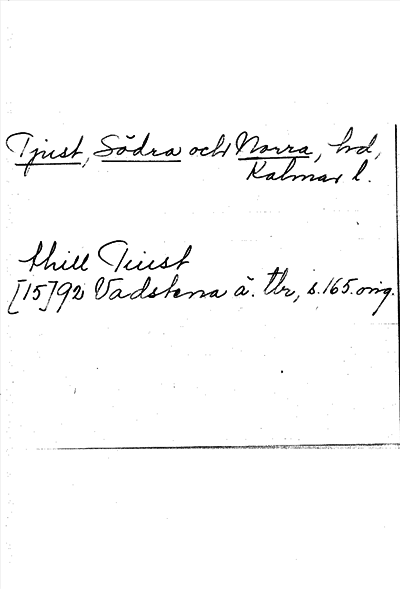 Tjust, Södra och Norra, hd,
Kalmar l.
thill Tiust
[15]92 Vadstena ä. tlr, s. 165. orig.